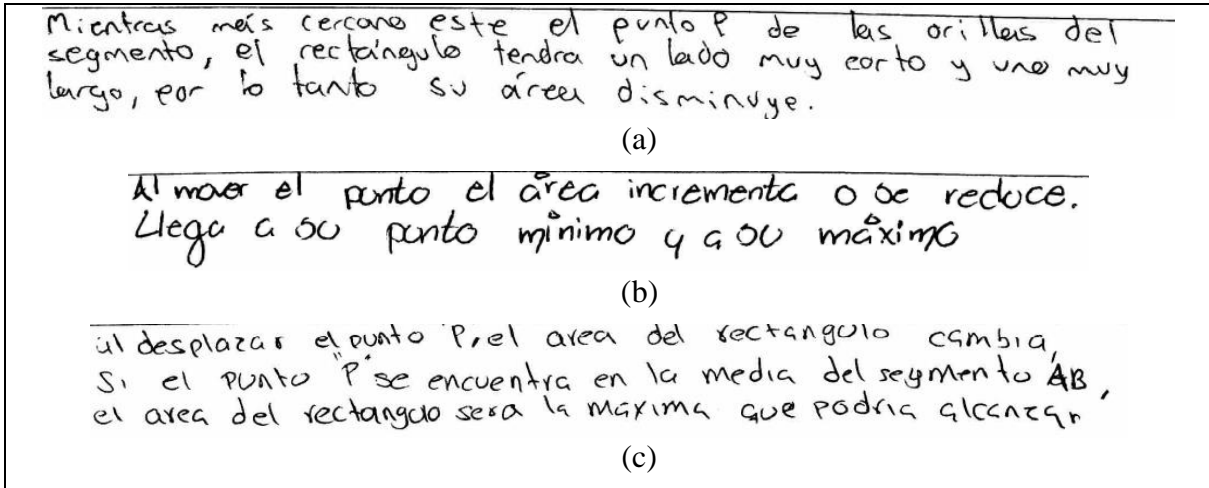 Mientras más cercano este el punto P de las orillas del
segmento, el rectángulo tendra un lado muy corto y uno muy
largo, por lo tanto su área disminuye.
(a)
Al mover el punto el área incrementa o se reduce.
Llega a su punto mínimo y a su máximo
(b)
al desplazar el punto P, el area del rectangulo cambia,
Si el punto "P" se encuentra en la media del segmento AB,
el area del rectangulo sera la maxima que podria alcanzar
(c)